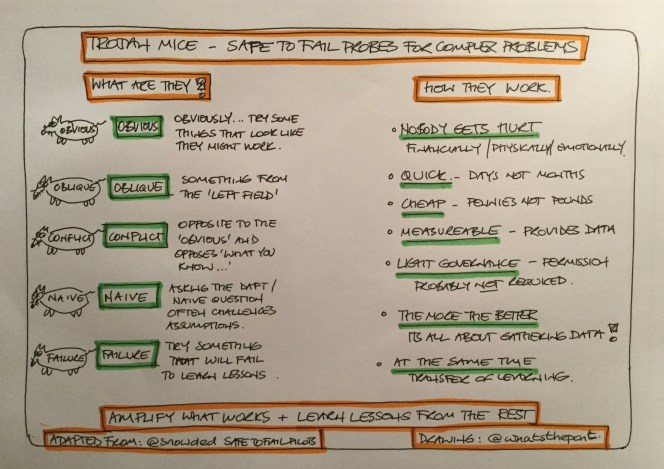 TROJAN MICE - SAFE TO FAIL PROBES FOR COMPLEX PROBLEMS
WHAT ARE THEY ?!
OBVIOUS OBVIOUS OBVIOUSLY... TRY SOME
THINGS THAT LOOK LIKE
THEY MIGHT WORK.
OBLIQUE OBLIQUE SOMETHING FROM
THE 'LEFT FIELD'
CONFLICT CONFLICT OPPOSITE TO THE
'OBVIOUS' AND
OPPOSES 'WHAT YOU
KNOW...'
NAIVE NAIVE ASKING THE DAFT/
NAIVE QUESTION
OFTEN CHALLENGES
ASSUMPTIONS.
FAILURE FAILURE TRY SOMETHING
THAT WILL FAIL
TO LEARN LESSONS.
HOW THEY WORK.
NOBODY GETS HURT
FINANCIALLY/PHYSICALLY/EMOTIONALLY.
QUICK - DAYS NOT MONTHS
CHEAP - PENNIES NOT POUNDS
MEASUREABLE - PROVIDES DATA
LIGHT GOVERNANCE - PERMISSION
PROBABLY NOT REQUIRED.
THE MORE THE BETTER
ITS ALL ABOUT GATHERING DATA !
AT THE SAME TIME
TRANSFER OF LEARNING.
AMPLIFY WHAT WORKS + LEARN LESSONS FROM THE REST
ADAPTED FROM: @snowded SAFETOFAILPILOTS
DRAWING: @whatsthepont.